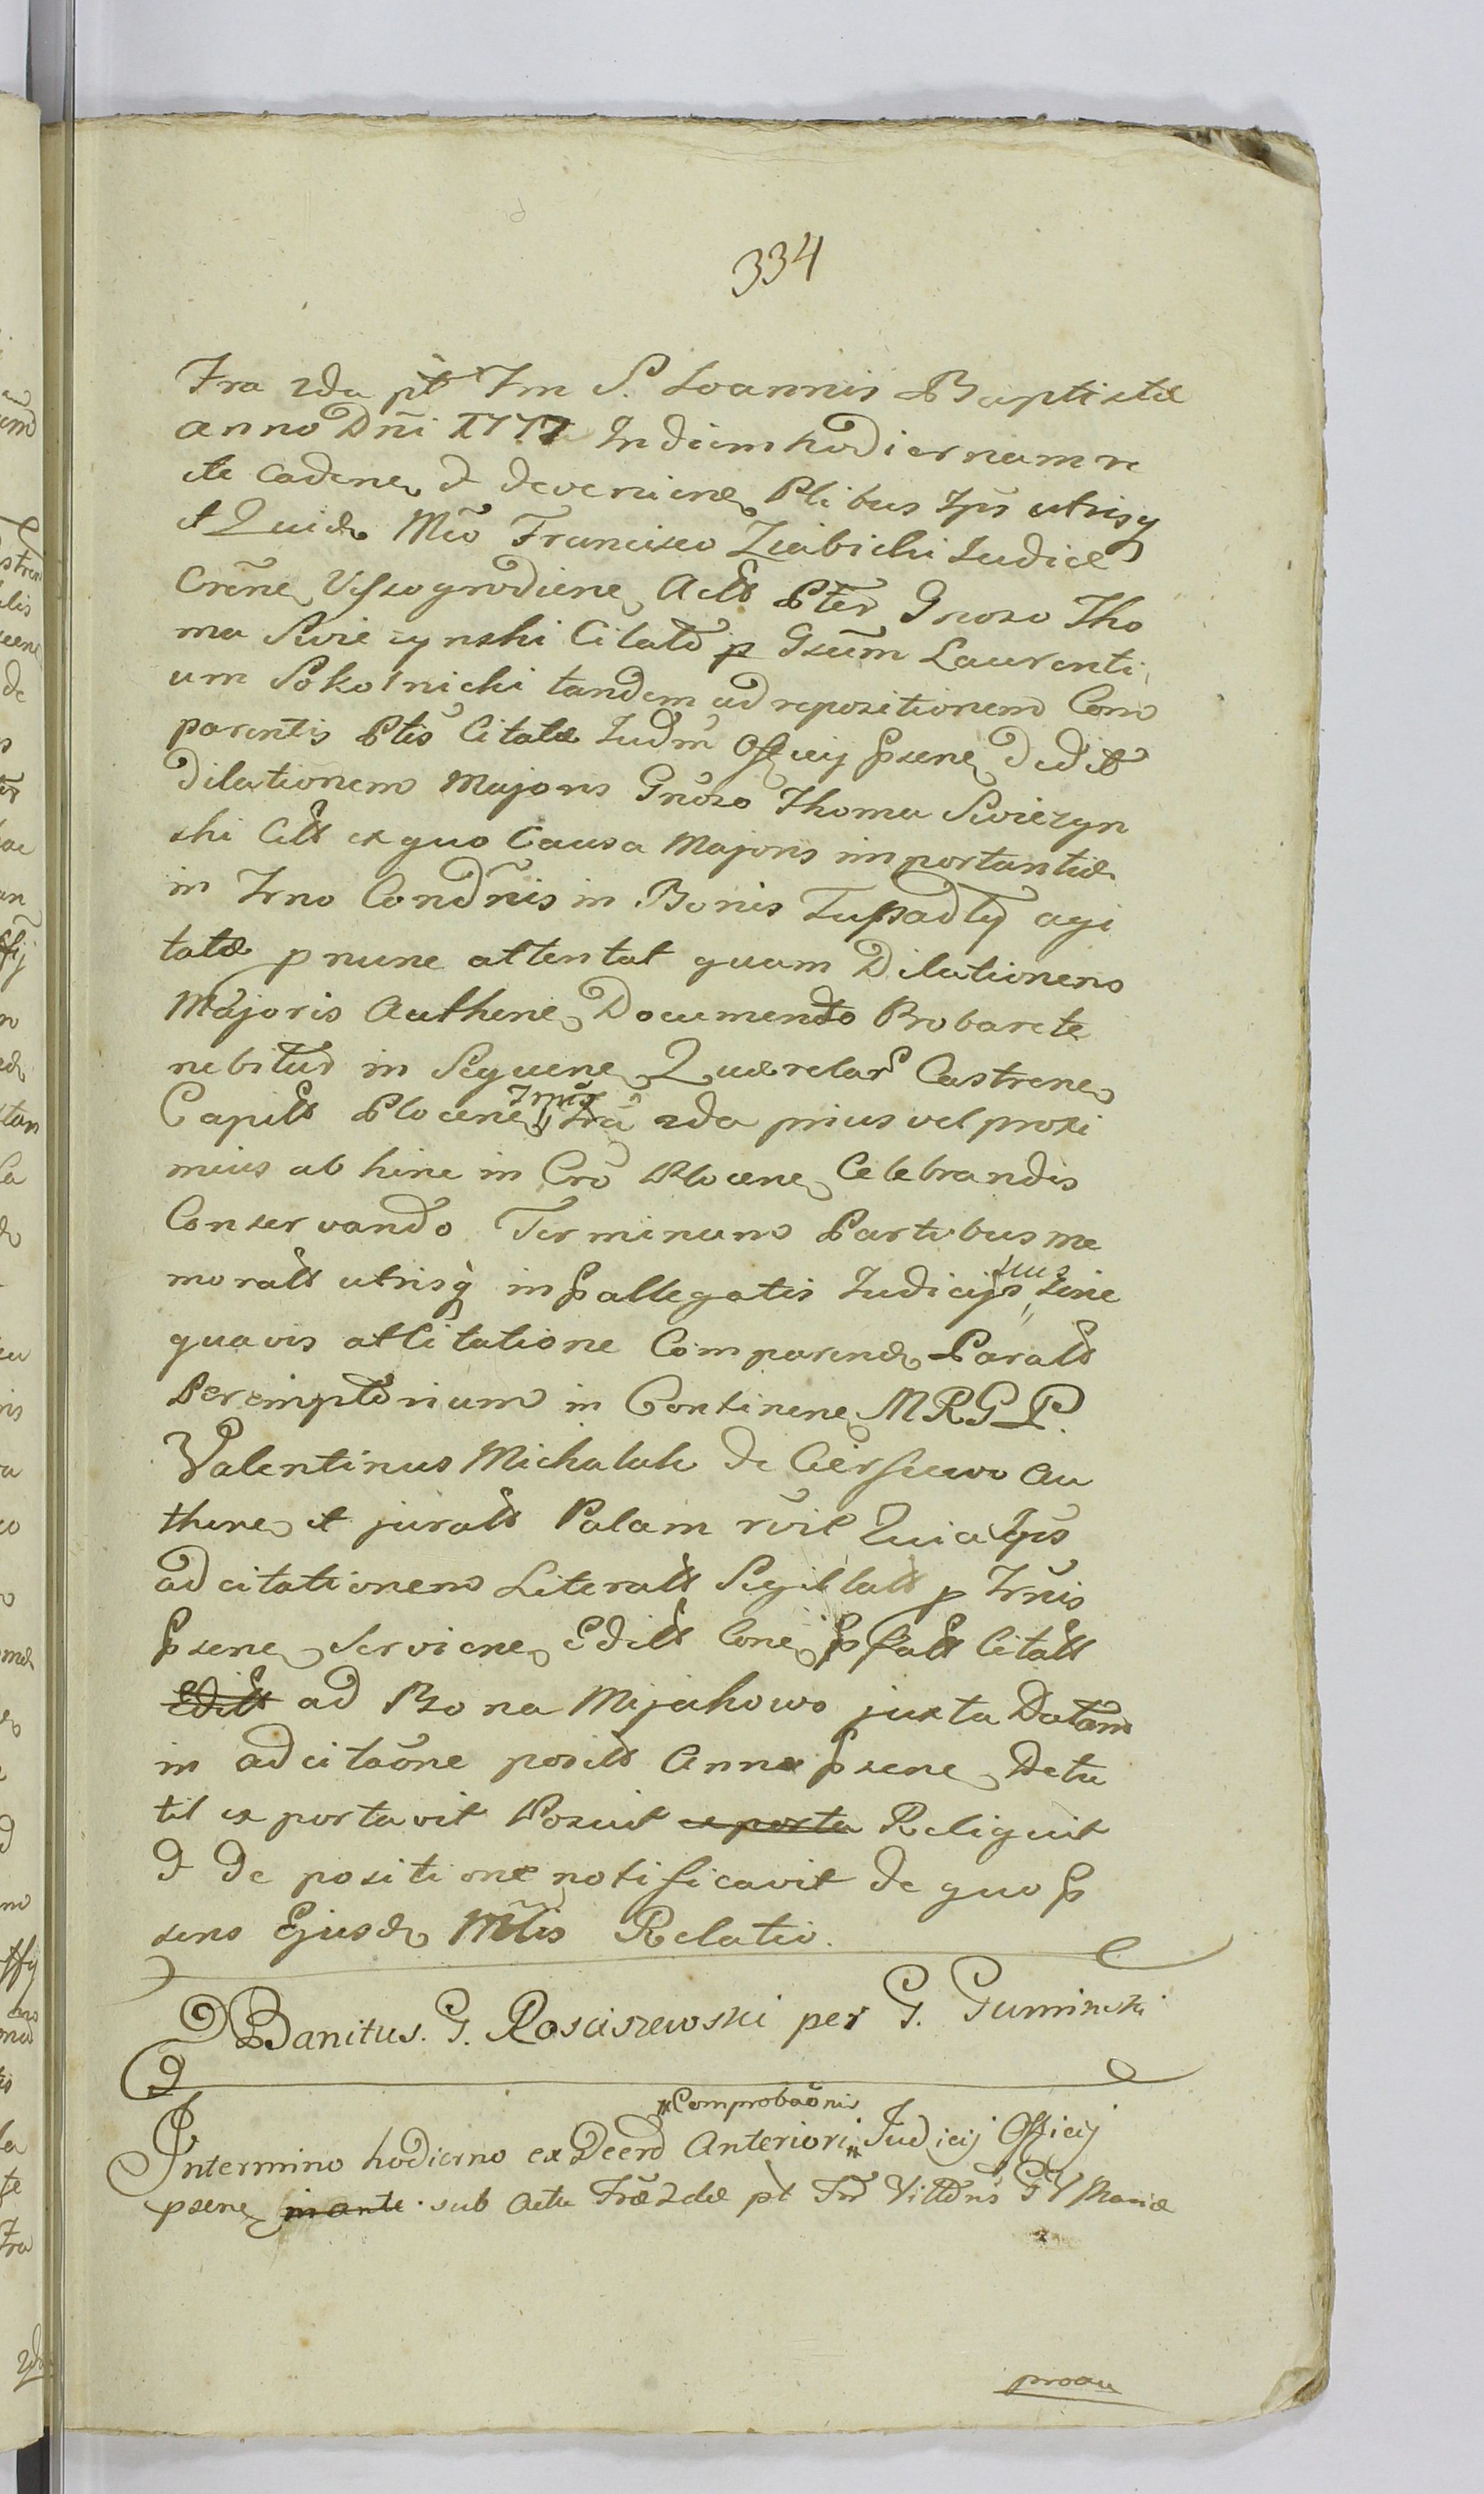 334
Fra 2da pt Fm S. Joannis Baptistæ
anno Dñi 1777 In diem hodiernam ri
te caden. & devenien. Ptibus Ips utrisq
et Quid. Mco Francisco Ziabicki Judice
Cren. Vissogrodien. Act. Pter Gnoso Tho
ma Swiezynski Citato p Gsum Laurenti
um Sokolnicki tandem ad repositionem Com
parentis Ptis Citatæ Judm Officij psen. dedit
dilationem Majoris Gnoso Thoma Swiezyn
ski Citt ex quo Causa Majoris importantiæ
in Trno Condnis in Bonis Tupadły agi
tatæ p nunc attentat quam Dilationem
Majoris Authen. Documento Probare te
nebitur in Sequen. Quærelar Castren.
Capitt Plocen. Tmis Fra 2da prius vel proxi
mius ab hinc in Cro Plocen. Celebrandis
Conservando Terminum Partibus me
moratt utrisq in p allegatis Judicijs suis sine
quavis attitatione Comparend. Paratt
Peremptorium in Continen. MRGP.
Valentinus Michalak de Ciersewo au
then. et juratt Palam rvit Quia Ips
adcitationem Literatt Sigillatt p Trnis
psen. Servien. Editt Con. p fatt Citatt
Editt ad Bona Mijakowo juxta Datam
in adcitaone positt Anno psen. Detu
lit exportavit Posuit exporta Reliquit
& de positione notificavit de quo p
sens Ejusd. Mtlis Relatio.
Banitus. G. Rosciszewski per G. Guminski
Comprobaonis
In termino hodierno ex Decrd Anteriori Judicij Officij
psen. in ante sub actu Fræ 2dæ pt Fr Vittõns G V Mariæ
proxi